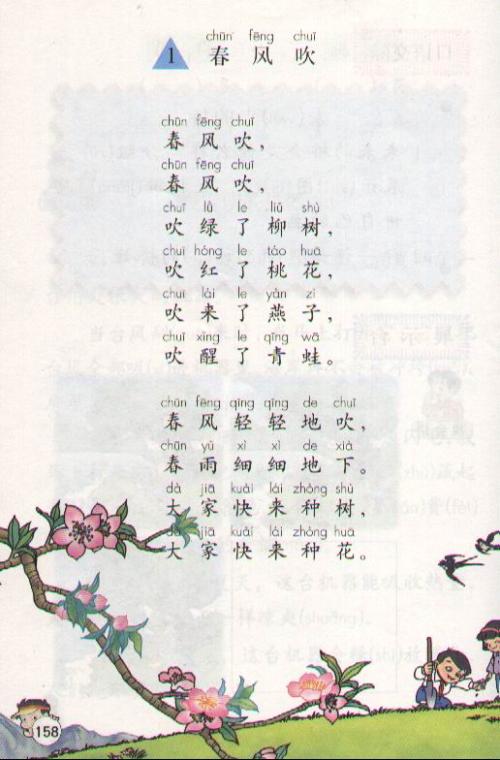 chūn fēng chuī
1 春风吹
chūn fēng chuī
春风吹，
chūn fēng chuī
春风吹，
chuī lǜ le liǔ shù
吹绿了柳树，
chuī hóng le táo huā
吹红了桃花，
chuī lái le yàn zi
吹来了燕子，
chuī xǐng le qīng wā
吹醒了青蛙。
chūn fēng qīng qīng de chuī
春风轻轻地吹，
chūn yǔ xì xì de xià
春雨细细地下。
dà jiā kuài lái zhòng shù
大家快来种树
dà jiā kuài lái zhòng huā
大家快来种花。
158